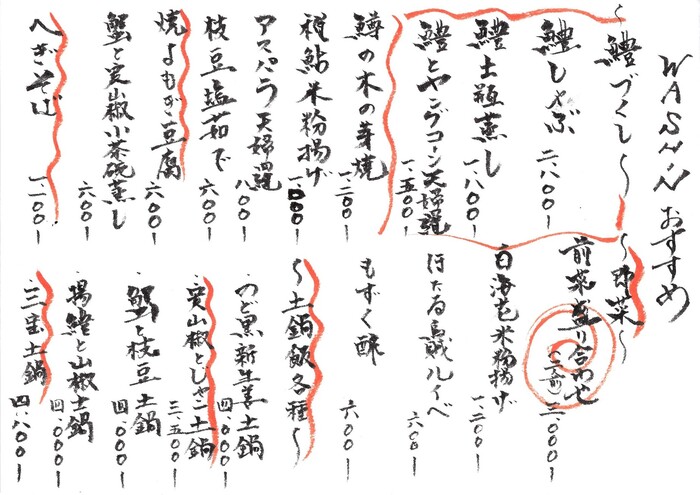 WASHIN おすすめ
〜鱧づくし〜
鱧しゃぶ 二、八〇〇ー
鱧土瓶蒸し 一、八〇〇ー
鱧とヤングコーン天婦羅 一、五〇〇ー
鱒の木の芽焼 一、二〇〇ー
稚鮎米粉揚げ 一、〇〇〇ー
アスパラ天婦羅 八〇〇ー
枝豆塩茹で 六〇〇ー
焼よもぎ豆腐 六〇〇ー
蟹と実山椒小茶碗蒸し 六〇〇ー
へぎそば 一、一〇〇ー
〜野菜〜
前菜盛り合わせ（二人前） 二、〇〇〇ー
白海老米粉揚げ 一、二〇〇ー
ほたる烏賊ルイベ 六〇〇ー
もずく酢 六〇〇ー
〜土鍋飯各種〜
のど黒新生姜土鍋 四、〇〇〇ー
実山椒とじゃこ土鍋 三、五〇〇ー
と枝豆土鍋 四、〇〇〇ー
と山椒土鍋 四、〇〇〇ー
土鍋 四、八〇〇ー